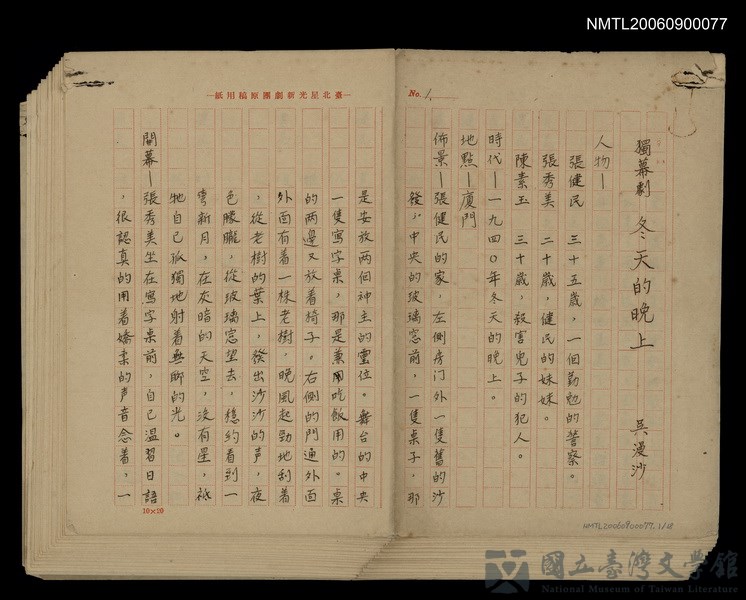 NMTL20060900077
No. 1.
獨幕劇 冬天的晚上 吳漫沙
人物—
張健民 三十五歲，一個勤勉的警察。
張秀美 二十歲，健民的妹妹。
陳素玉 三十歲，殺害兒子的犯人。
時代—一九四〇年冬天的晚上。
地點—廈門
佈景—張健民的家，左側房门外一隻舊的沙
發，中央的玻璃窓前，一隻桌子，那
臺北星光新劇團原稿用紙
是安放两個神主的靈位。舞台的中央
一隻寫字桌，那是兼用吃飯用的。桌
的两邊又放着椅子。右側的門通外面
外面有着一株老樹，晚風起勁地刮着
，從老樹的葉上，發出沙沙的声，夜
色朦朧，從玻璃窓望去，穏約看到一
彎新月，在灰暗的天空，没有星，祇
牠自己孤獨地射着無聊的光。
開幕—張秀美坐在寫字桌前，自己温習日語
，很認真的用着嬌柔的声音念着，一
10×20
NMTL20060900077.1/18
國立臺灣文學館
National Museum of Taiwan Literature